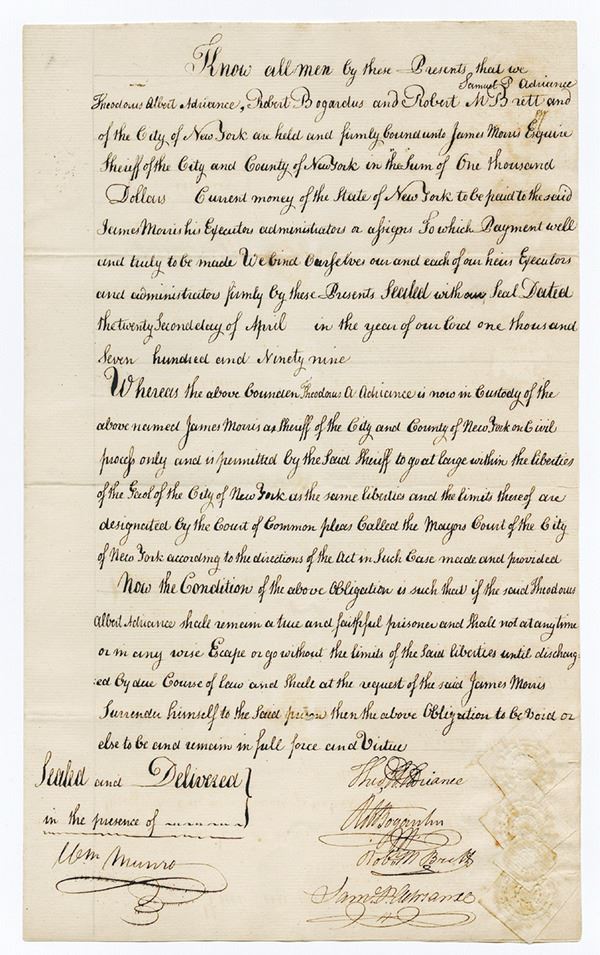 Know all men by these Presents, that we
Samuel P Adriance
Theodorus Albert Adriance, Robert Bogardus and Robert M Brett and
of the City of New York are held and firmly bound unto James Morris Esquire
Sheriff of the City and County of New York in the Sum of One thousand
Dollars Current money of the State of New York to be paid to the said
James Morris his Executors administrators or assigns To which Payment well
and truly to be made We bind Ourselves our and each of our heirs Executors
and administrators firmly by these Presents Sealed with our Seal Dated
the twenty Second day of April in the year of our lord one thousand
Seven hundred and Ninety nine
Whereas the above bounden Theodorus A Adriance is now in Custody of the
above named James Morris as Sheriff of the City and County of New York on Civil
process only and is permitted by the Said Sheriff to go at large within the liberties
of the Gaol of the City of New York as the same liberties and the limits thereof are
designated by the Court of Common pleas Called the Mayors Court of the City
of New York according to the directions of the Act in Such Case made and provided
Now the Condition of the above Obligation is such that if the said Theodorus
Albert Adriance shall remain a true and faithful prisoner and shall not at any time
or in any wise Escape or go without the limits of the Said liberties until discharg-
ed by due Course of law and shall at the request of the said James Morris
Surrender himself to the Said prison then the above Obligation to be Void or
else to be and remain in full force and Virtue
Sealed and Delivered
in the presence of
Wm Munro
Theo A Adriance
Robt Bogardus
Robt M Brett
Saml P Adriance